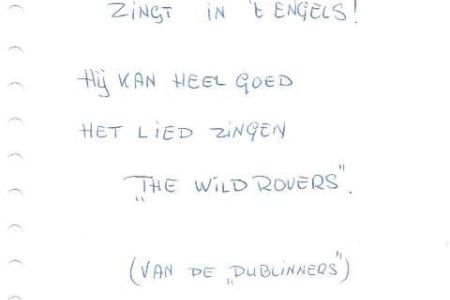 ZINGT IN 'T ENGELS!
HIJ KAN HEEL GOED
HET LIED ZINGEN
„THE WILD ROVERS".
(VAN DE „DUBLINNERS")